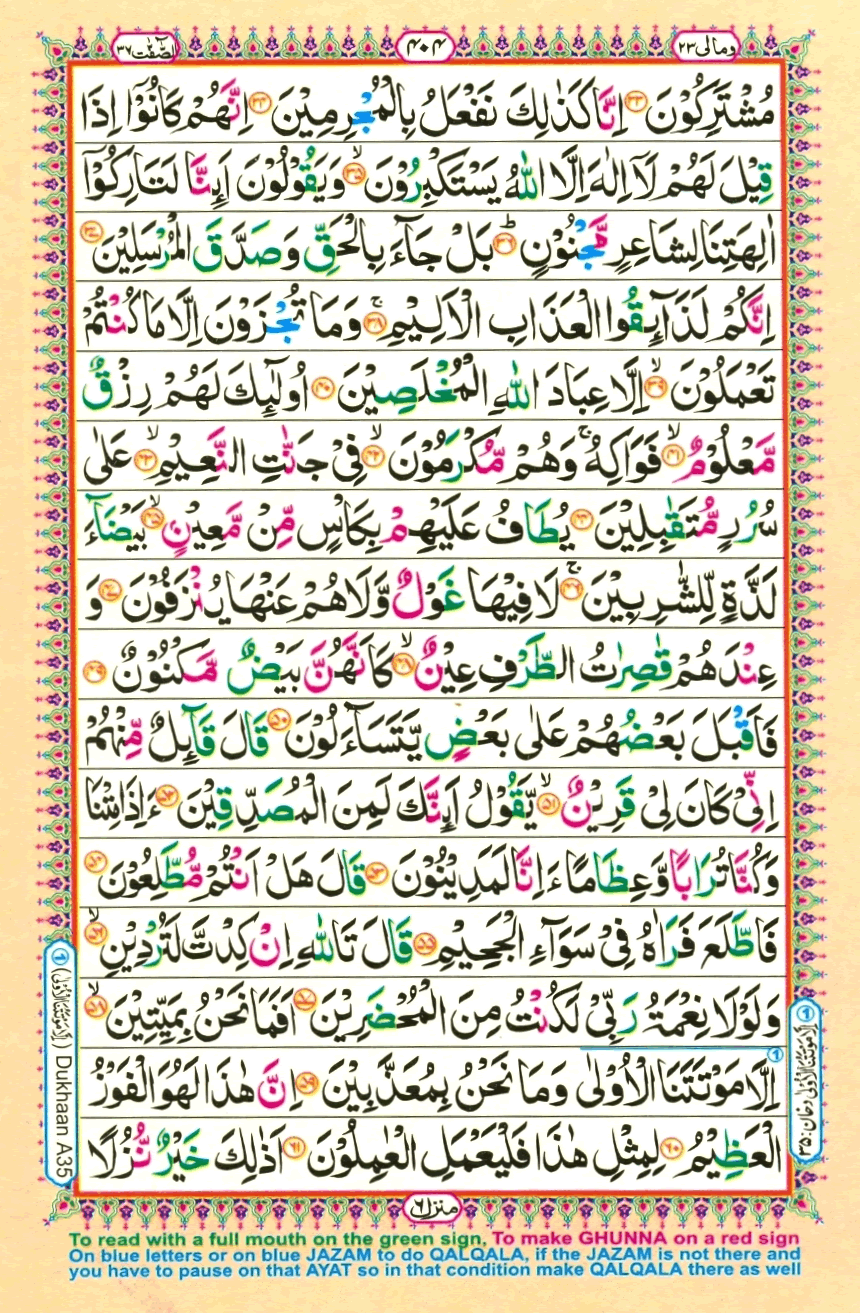 وما لی ۲۳
۴۰۴
الصّٰفّٰت ۳۷
مُشْتَرِكُوْنَ ۳۳ اِنَّا كَذٰلِكَ نَفْعَلُ بِالْمُجْرِمِيْنَ ۳۴ اِنَّهُمْ كَانُوْۤا اِذَا
قِيْلَ لَهُمْ لَاۤ اِلٰهَ اِلَّا اللّٰهُ يَسْتَكْبِرُوْنَ ۙ ۳۵ وَيَقُوْلُوْنَ اَئِنَّا لَتَارِكُوْۤا
اٰلِهَتِنَا لِشَاعِرٍ مَّجْنُوْنٍ ؕ ۳۶ بَلْ جَآءَ بِالْحَقِّ وَصَدَّقَ الْمُرْسَلِيْنَ ۳۷
اِنَّكُمْ لَذَآئِقُوا الْعَذَابِ الْاَلِيْمِ ۚ ۳۸ وَمَا تُجْزَوْنَ اِلَّا مَا كُنْتُمْ
تَعْمَلُوْنَ ۙ ۳۹ اِلَّا عِبَادَ اللّٰهِ الْمُخْلَصِيْنَ ۴۰ اُولٰٓئِكَ لَهُمْ رِزْقٌ
مَّعْلُوْمٌ ۙ ۴۱ فَوَاكِهُ ۚ وَهُمْ مُّكْرَمُوْنَ ۙ ۴۲ فِيْ جَنّٰتِ النَّعِيْمِ ۙ ۴۳ عَلٰى
سُرُرٍ مُّتَقٰبِلِيْنَ ۴۴ يُطَافُ عَلَيْهِمْ بِكَاْسٍ مِّنْ مَّعِيْنٍۭ ۙ ۴۵ بَيْضَآءَ
لَذَّةٍ لِّلشّٰرِبِيْنَ ۚ ۴۶ لَا فِيْهَا غَوْلٌ وَّلَا هُمْ عَنْهَا يُنْزَفُوْنَ ۴۷ وَ
عِنْدَهُمْ قٰصِرٰتُ الطَّرْفِ عِيْنٌ ۙ ۴۸ كَاَنَّهُنَّ بَيْضٌ مَّكْنُوْنٌ ۴۹
فَاَقْبَلَ بَعْضُهُمْ عَلٰى بَعْضٍ يَّتَسَآءَلُوْنَ ۵۰ قَالَ قَآئِلٌ مِّنْهُمْ
اِنِّيْ كَانَ لِيْ قَرِيْنٌ ۙ ۵۱ يَّقُوْلُ اَئِنَّكَ لَمِنَ الْمُصَدِّقِيْنَ ۵۲ ءَاِذَا مِتْنَا
وَكُنَّا تُرَابًا وَّعِظَامًا ءَاِنَّا لَمَدِيْنُوْنَ ۵۳ قَالَ هَلْ اَنْتُمْ مُّطَّلِعُوْنَ ۵۴
فَاطَّلَعَ فَرَاٰهُ فِيْ سَوَآءِ الْجَحِيْمِ ۵۵ قَالَ تَاللّٰهِ اِنْ كِدْتَّ لَتُرْدِيْنِ ۙ ۵۶
وَلَوْلَا نِعْمَةُ رَبِّيْ لَكُنْتُ مِنَ الْمُحْضَرِيْنَ ۵۷ اَفَمَا نَحْنُ بِمَيِّتِيْنَ ۙ ۵۸
اِلَّا مَوْتَتَنَا الْاُوْلٰى وَمَا نَحْنُ بِمُعَذَّبِيْنَ ۵۹ اِنَّ هٰذَا لَهُوَ الْفَوْزُ
الْعَظِيْمُ ۶۰ لِمِثْلِ هٰذَا فَلْيَعْمَلِ الْعٰمِلُوْنَ ۶۱ اَذٰلِكَ خَيْرٌ نُّزُلًا
① اِلَّا مَوْتَتُنَا الْاُوْلٰى دخان: ۳۵
① (اِلَّا مَوْتَتُنَا الْاُوْلٰى) Dukhaan A35
منزل ۶
To read with a full mouth on the green sign, To make GHUNNA on a red sign
On blue letters or on blue JAZAM to do QALQALA, if the JAZAM is not there and
you have to pause on that AYAT so in that condition make QALQALA there as well